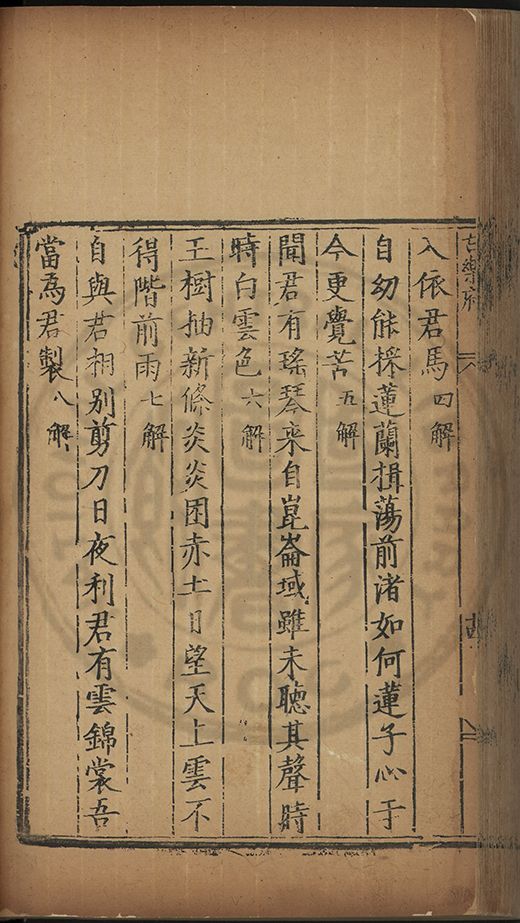 古樂府
入依君馬四解
自幼能採蓮蘭揖蕩前渚如何蓮子心于
今更覺苦五解
聞君有瑤琴來自崑崙域雖未聽其聲時
時白雲色六解
玉樹抽新條炎炎困赤土日望天上雲不
得階前雨七解
自與君相別剪刀日夜利君有雲錦裳吾
當爲君製八解